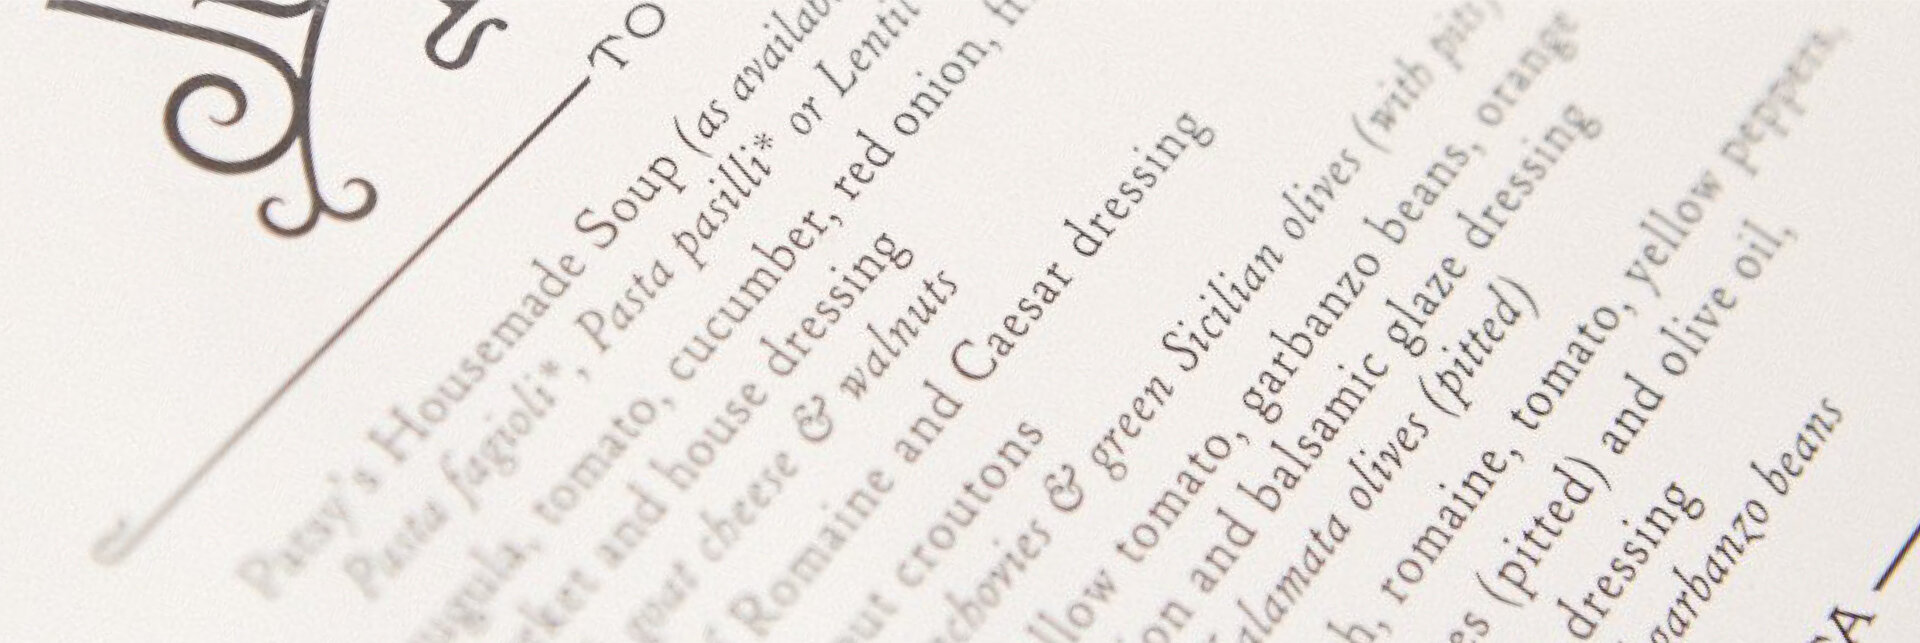 TO
Patsy's Housemade Soup (as availab
Pasta fagioli*, Pasta pasilli* or Lentil
ugula, tomato, cucumber, red onion, fi
rket and house dressing
goat cheese & walnuts
Romaine and Caesar dressing
out croutons
chovies & green Sicilian olives (with pits)
llow tomato, garbanzo beans, orange
on and balsamic glaze dressing
alamata olives (pitted)
h, romaine, tomato, yellow peppers,
es (pitted) and olive oil,
dressing
garbanzo beans
A